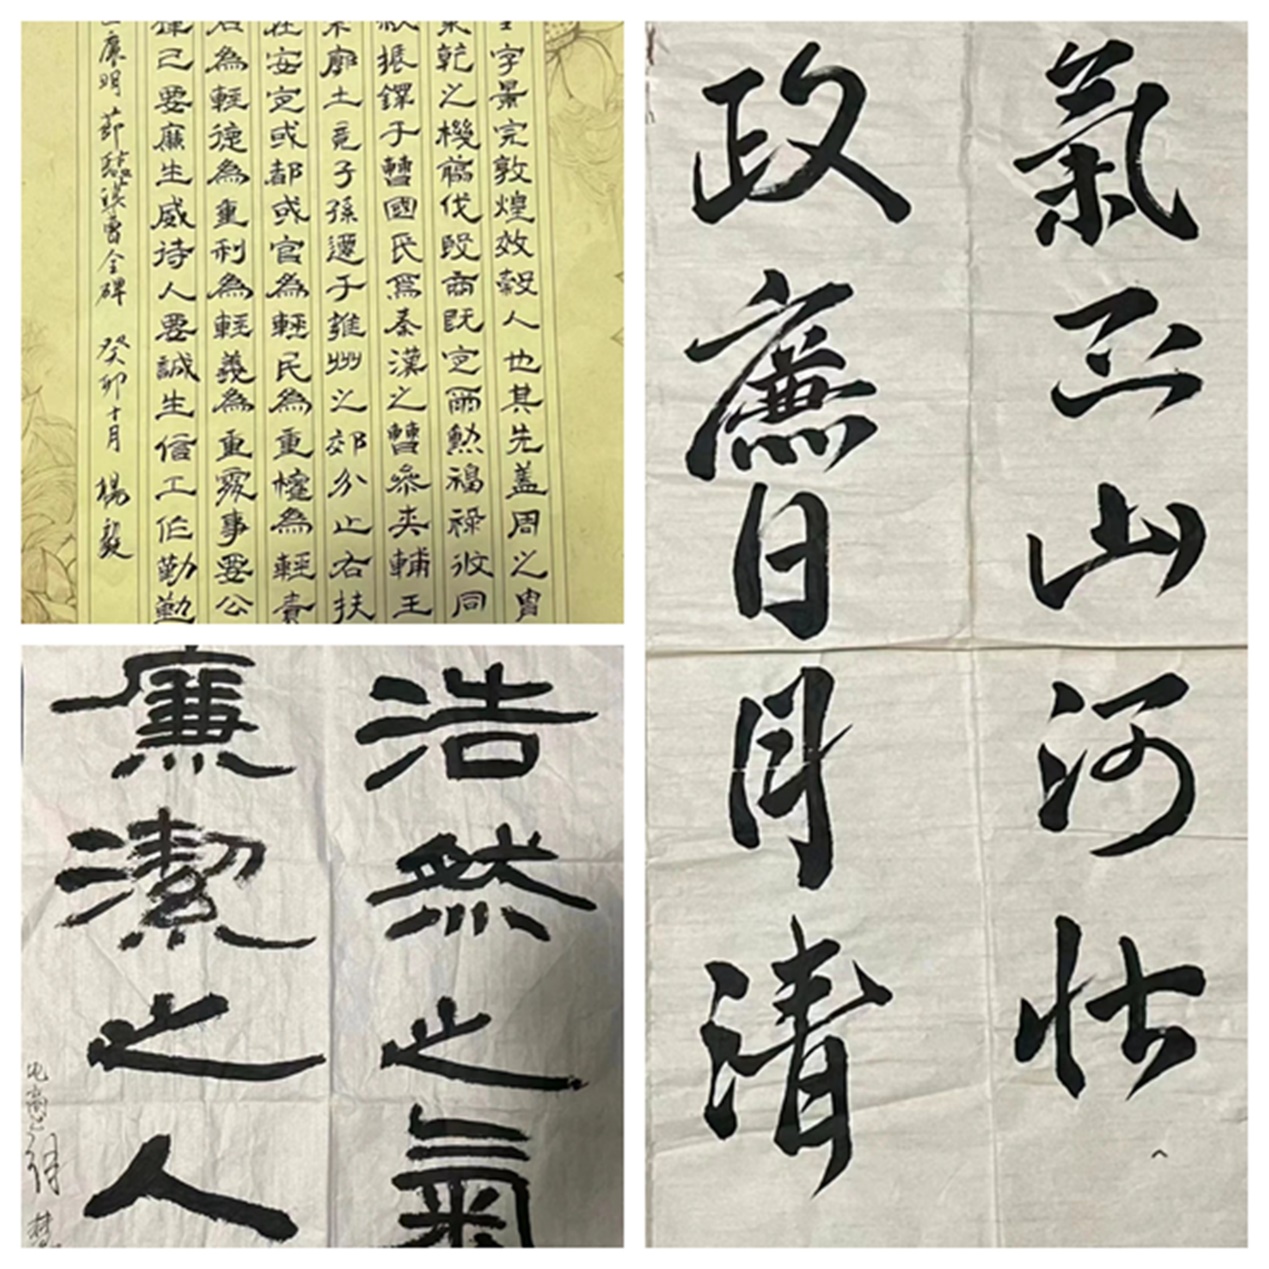 字景完敦煌效穀人也其先蓋周之胄
乾之機翦伐殷商既定爾勲福祿攸同
振鐸于曹國氏焉秦漢之曹參夾輔王
廓土竟子孫遷于雍州之郊分止右扶
在安定或都或官為輕民為重權為輕責
名為輕德為重利為輕義為重處事要公
律己要廉生威待人要誠生信工作勤勤
廉明 節臨漢曹全碑 癸卯十月 楊毅
氣正山河壯
政廉日月清
浩然之氣
廉潔之人